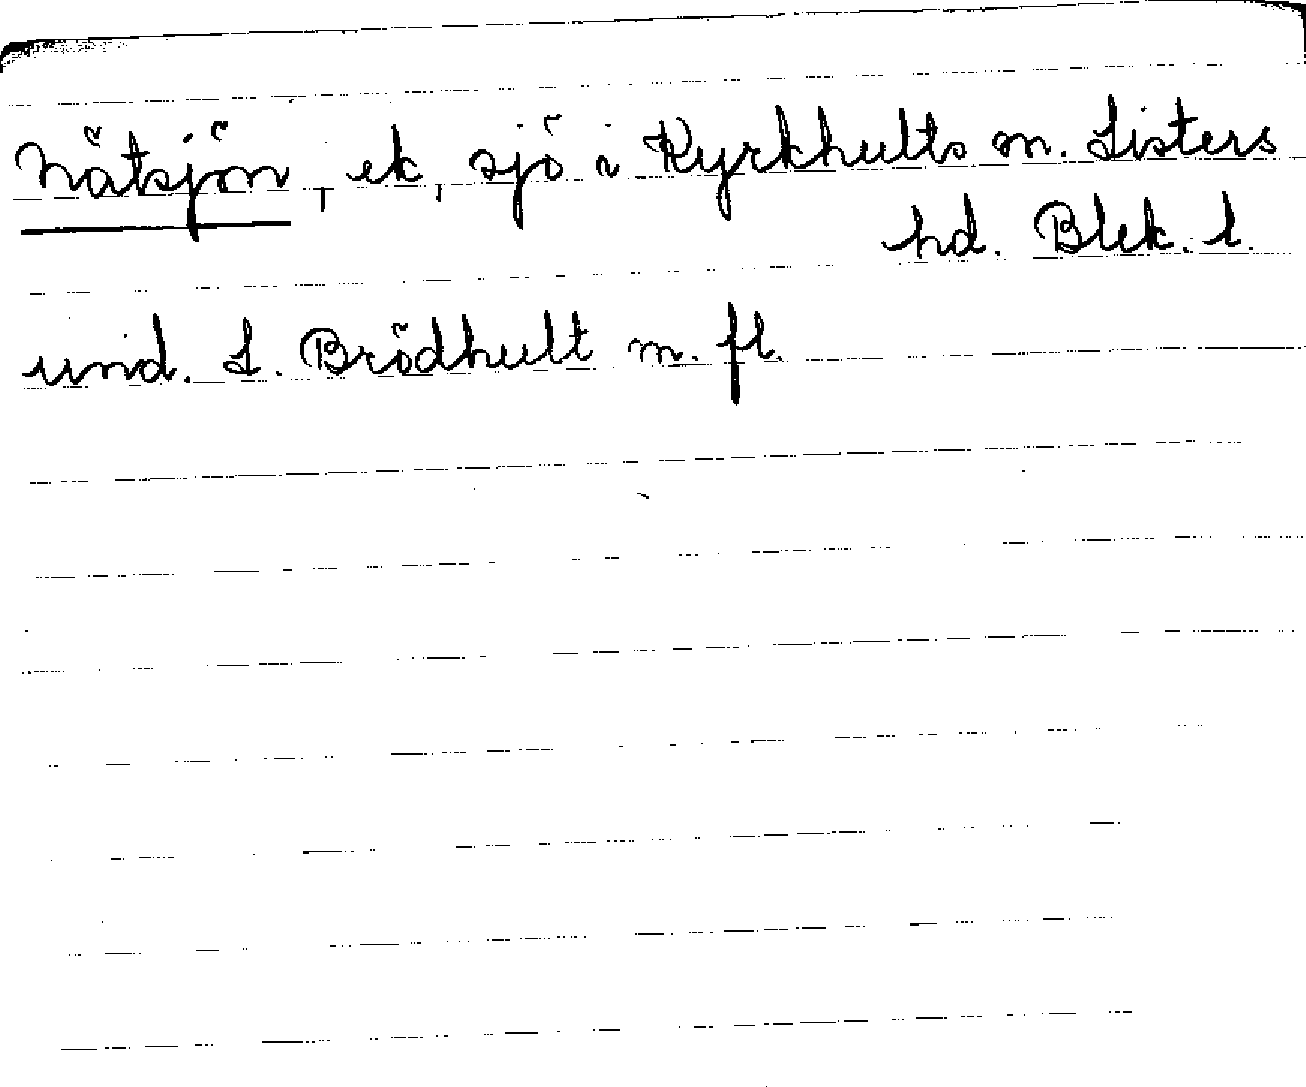 Nätsjön, ek, sjö i Kyrkhults sn. Listers
hd. Blek. l.
und. L. Brödhult m. fl.